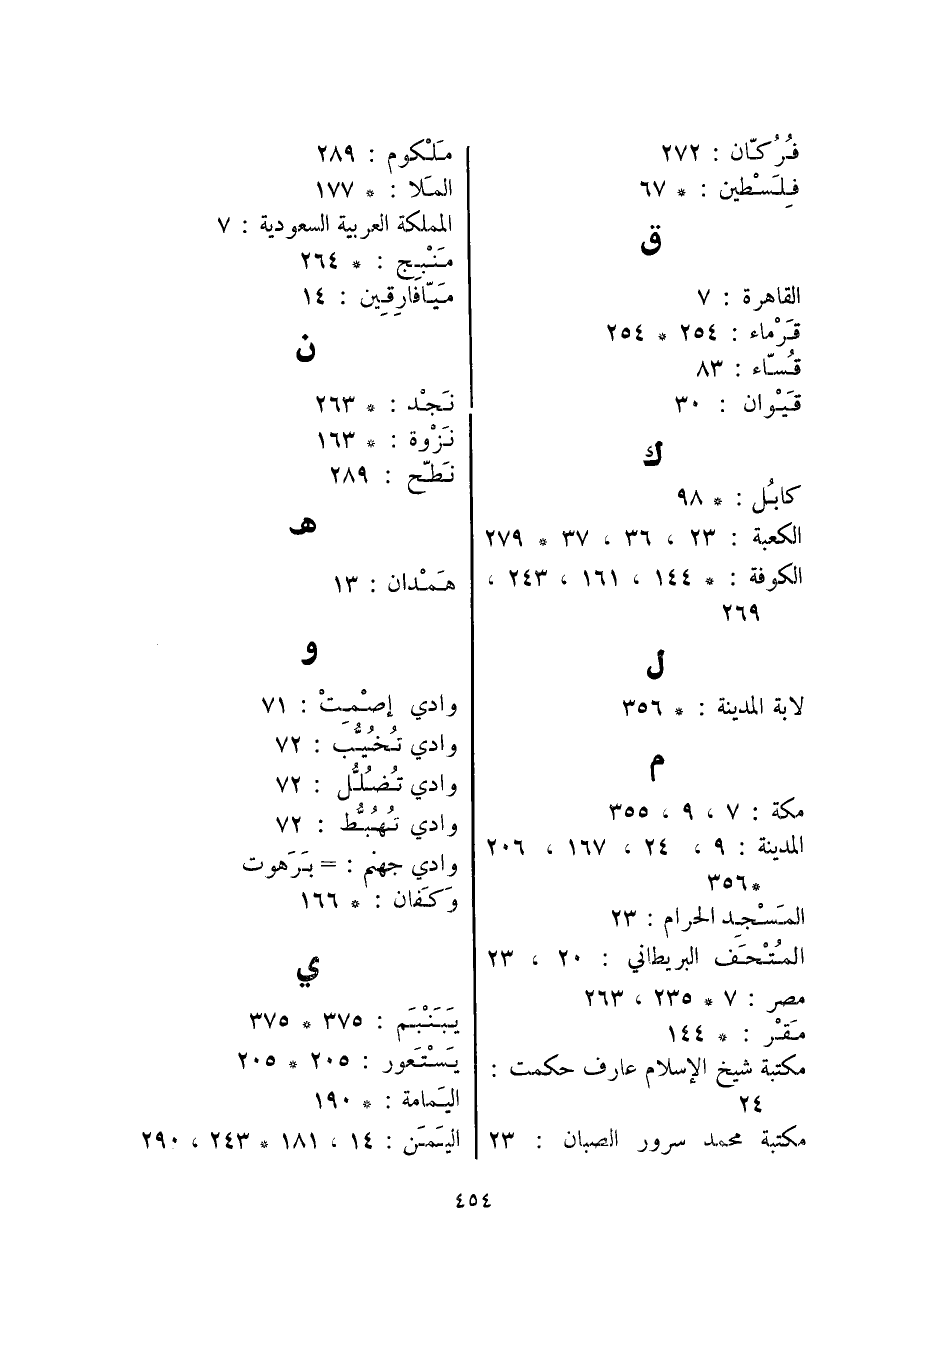 فُرُكّان : ٢٧٢
فِلَسْطين : * ٦٧
ق
القاهرة : ٧
قَرْماء : ٢٥٤ * ٢٥٤
قُسّاء : ٨٣
قَيْوان : ٣٠
ك
كابُل : * ٩٨
الكعبة : ٢٣ ، ٣٦ ، ٣٧ * ٢٧٩
الكوفة : * ١٤٤ ، ١٦١ ، ٢٤٣ ،
٢٦٩
ل
لابة المدينة : * ٣٥٦
م
مكة : ٧ ، ٩ ، ٣٥٥
المدينة : ٩ ، ٢٤ ، ١٦٧ ، ٢٠٦
*٣٥٦
المَسْجِد الحرام : ٢٣
المُتْحَف البريطاني : ٢٠ ، ٢٣
مصر : ٧ * ٢٣٥ ، ٢٦٣
مَقْر : * ١٤٤
مكتبة شيخ الإسلام عارف حكمت :
٢٤
مكتبة محمد سرور الصبان : ٢٣
مَلْكوم : ٢٨٩
المَلا : * ١٧٧
المملكة العربية السعودية : ٧
مَنْبِج : * ٢٦٤
مَيّافارِقِين : ١٤
ن
نَجْد : * ٢٦٣
نَزْوة : * ١٦٣
نَطّح : ٢٨٩
هـ
هَمْدان : ١٣
و
وادي إصْمِتْ : ٧١
وادي تُخُيِّبَ : ٧٢
وادي تُضُلُّل : ٧٢
وادي تُهُبُّط : ٧٢
وادي جهنم : = بَرَهوت
وَكَفان : * ١٦٦
ي
يَبَنْبَم : ٣٧٥ * ٣٧٥
يَسْتَعور : ٢٠٥ * ٢٠٥
اليَمامة : * ١٩٠
اليَمَن : ١٤ ، ١٨١ * ٢٤٣ ، ٢٩٠
٤٥٤